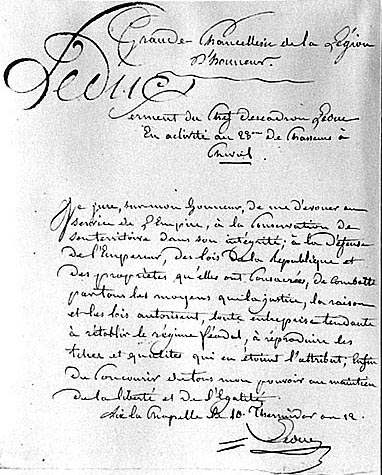 Grande Chancellerie de la Légion
d'honneur.
Leduc
Serment du Chef Descadron Leduc
En activité au 23eme de Chasseurs à
Cheval
Je jure, sur mon honneur, de me dévouer au
service de L'Empire, à la Conservation de
son territoire dans son intégrité; à la défense
de L'Empereur, des lois De la République et
des propriétés qu'elles ont Consacrées, de Combattre
par tous les moyens que la justice, la raison
et les lois autorisent, toute entreprise tendante
à rétablir le régime féodal, à réproduire les
titres et qualités qui en étoient l'attribut; Enfin
de Concourir de tous mon pouvoir au maintien
de la liberté et de l'Egalité
Aix la Chapelle le 10 Thermidor an 12.
Leduc